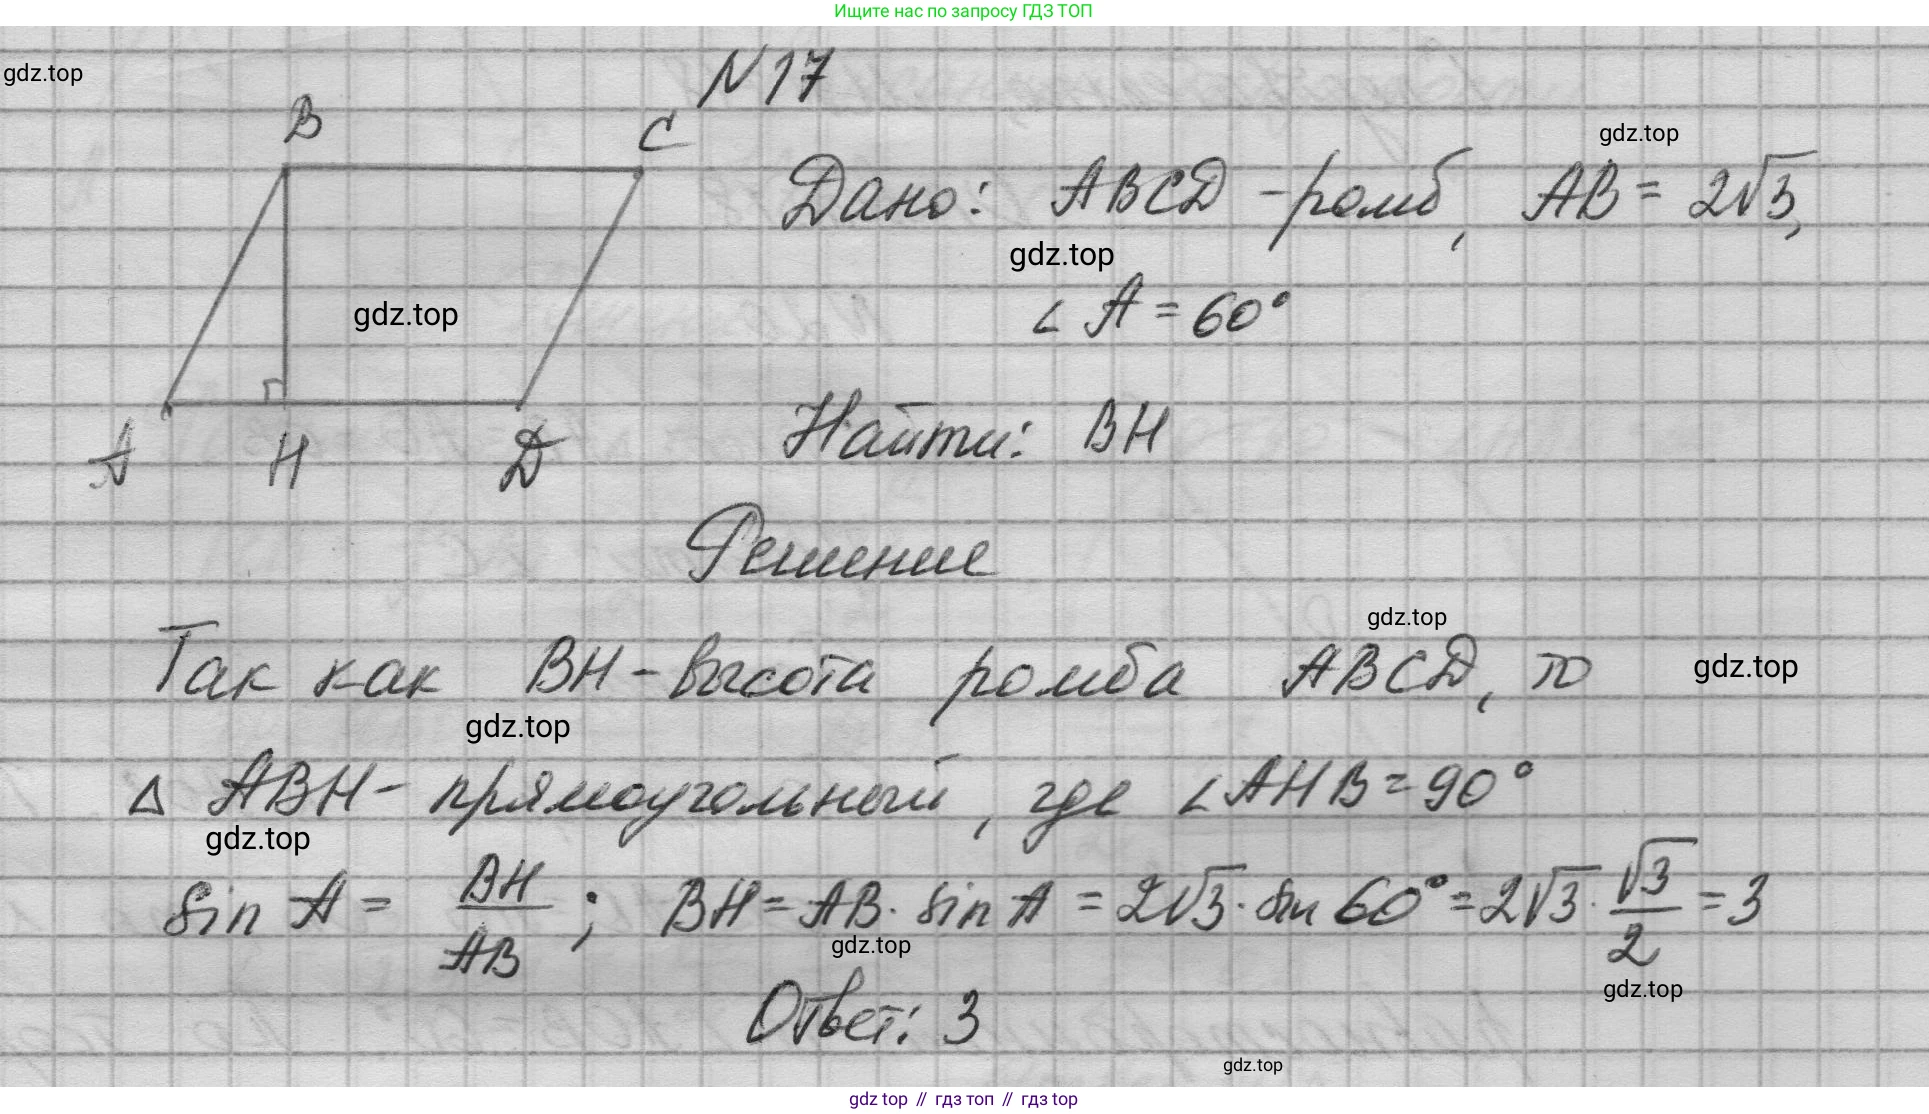 Ищите нас по запросу ГДЗ ТОП
gdz.top
N 17
B
C
gdz.top
Дано: ABCD - ромб, AB = 2√3,
gdz.top
∠ A = 60°
gdz.top
Найти: BH
A
H
D
Решение
gdz.top
Так как BH - высота ромба ABCD, то
gdz.top
gdz.top
△ ABH - прямоугольный, где ∠AHB = 90°
gdz.top
sin A = BH/AB ; BH = AB · sin A = 2√3 · sin 60° = 2√3 · √3/2 = 3
gdz.top
gdz.top
Ответ: 3
gdz.top
gdz top // гдз топ // гдз top